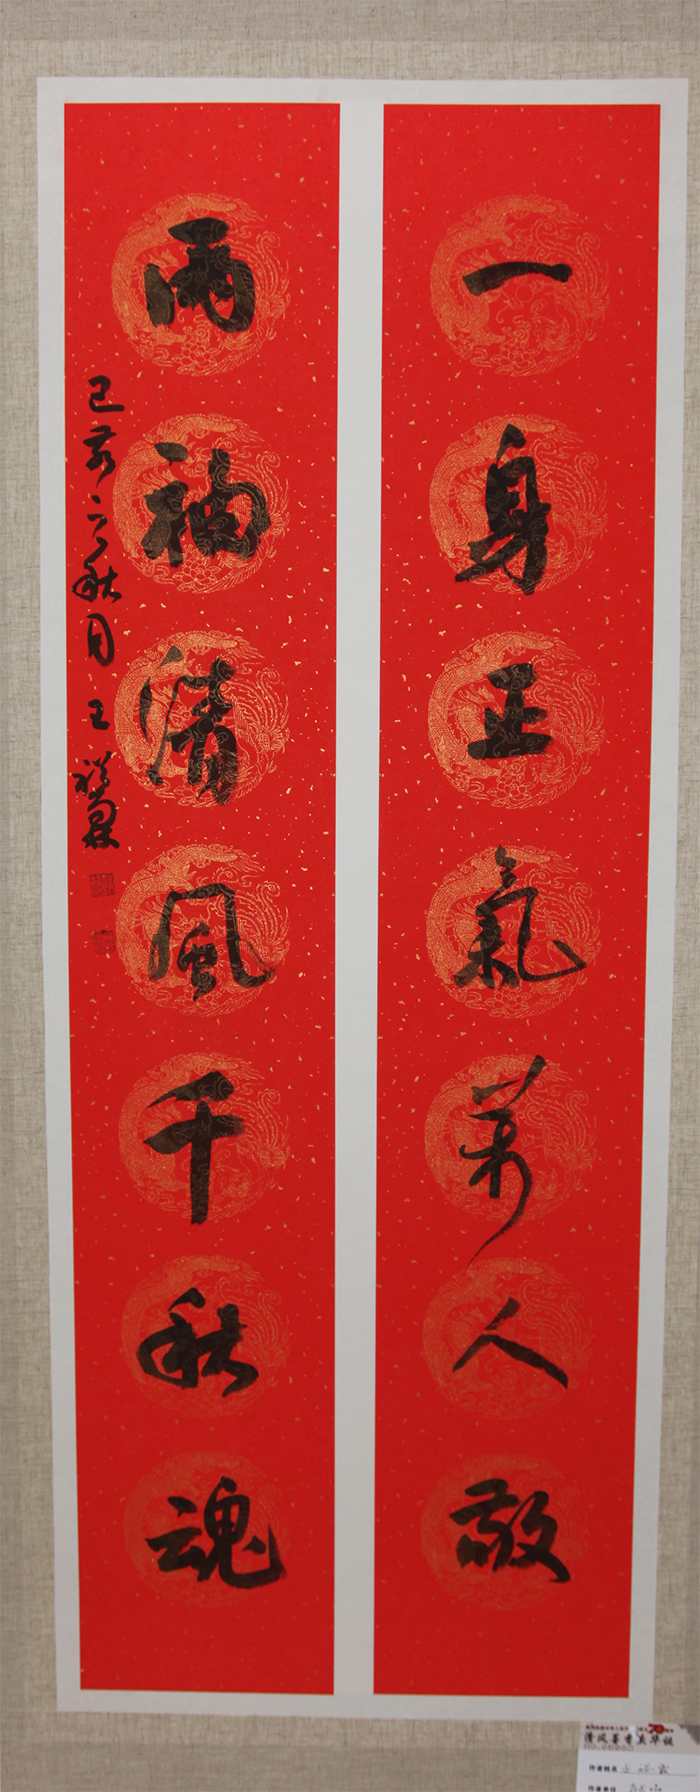 一身正氣萬人敬
兩袖清風千秋魂
己亥之秋月王
清风墨香画华诞
作者姓名
作者单位